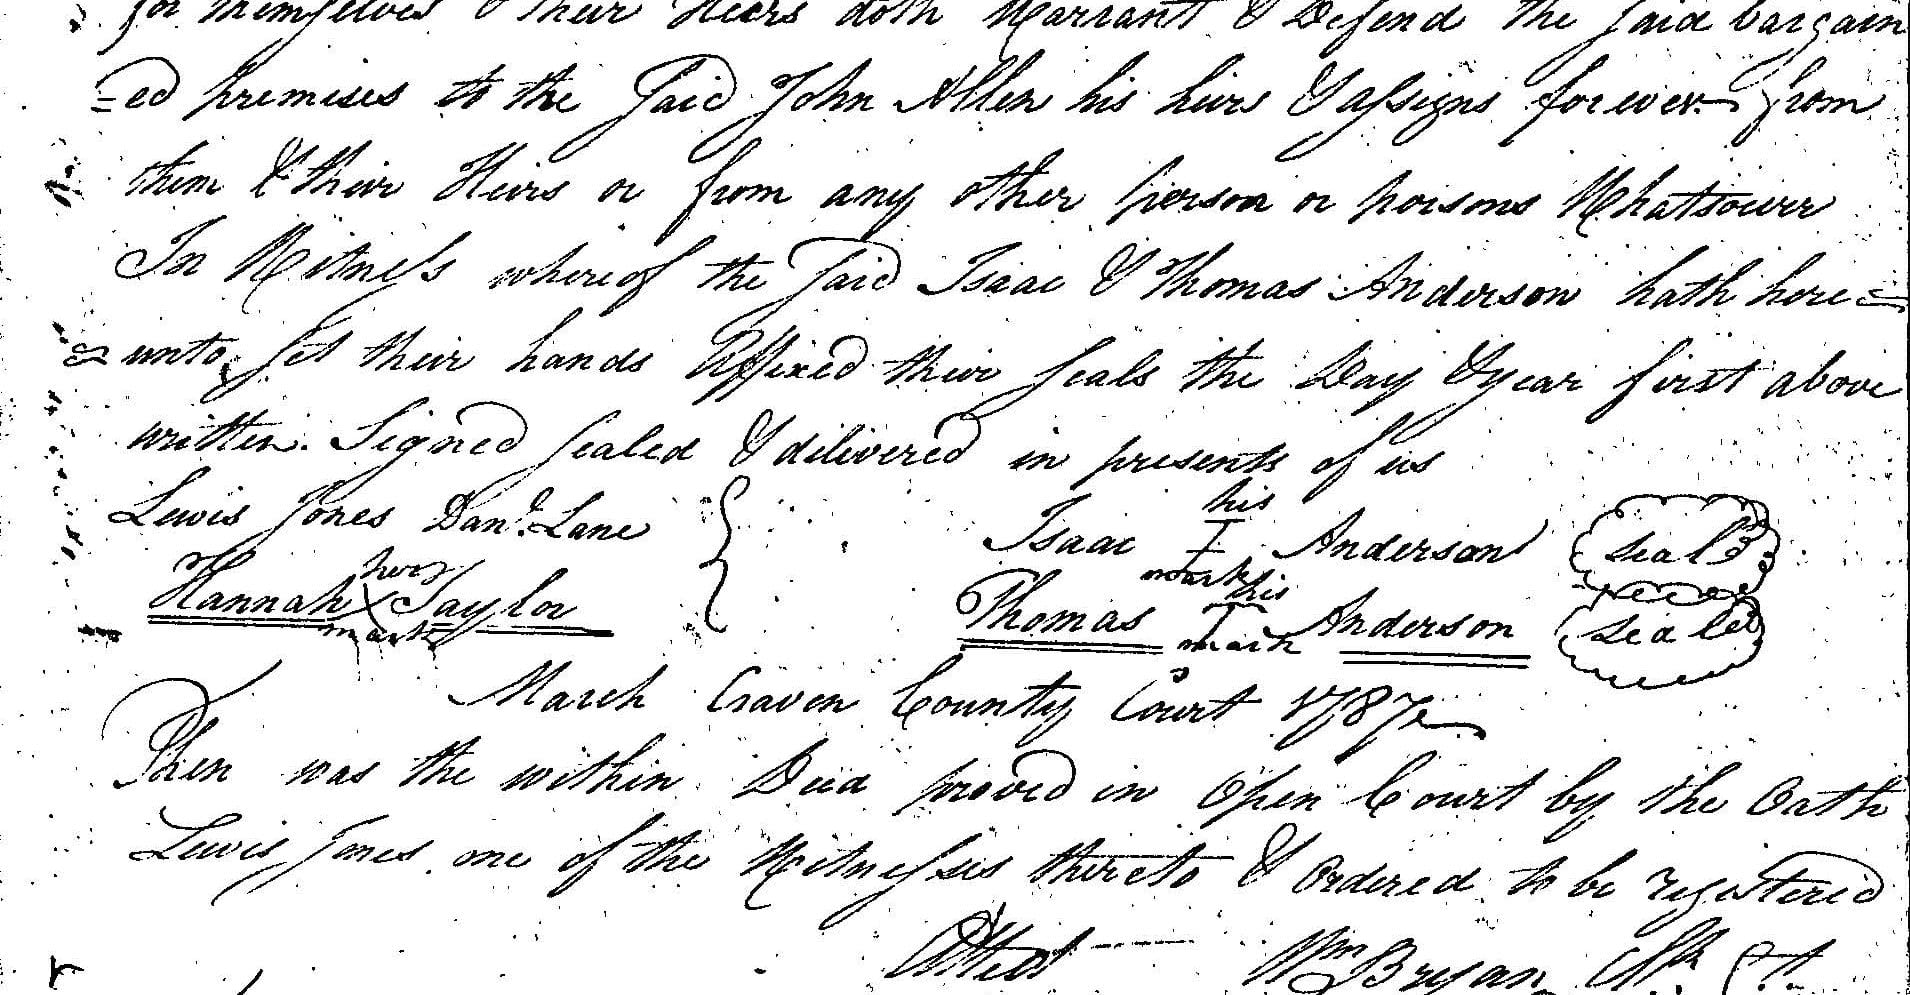 for themselves & their Heirs doth Warrant & Defend the said bargain
=ed premises to the said John Allen his heirs & assigns forever from
them & their Heirs or from any other person or persons Whatsoever
In Witness whereof the said Isaac & Thomas Anderson hath here=
=unto set their hands Affixed their seals the Day & year first above
written. Signed sealed & delivered in presents of us
Lewis Jones Danl. Lane
Hannah her X mark Taylor
Isaac his I mark Anderson seal
Thomas his T mark Anderson seal
March Craven County Court 1787
Then was the within Deed proved in Open Court by the Oath
Lewis Jones one of the Witnesses thereto & Ordered to be registered
Attest Wm Bryan Clk Ct